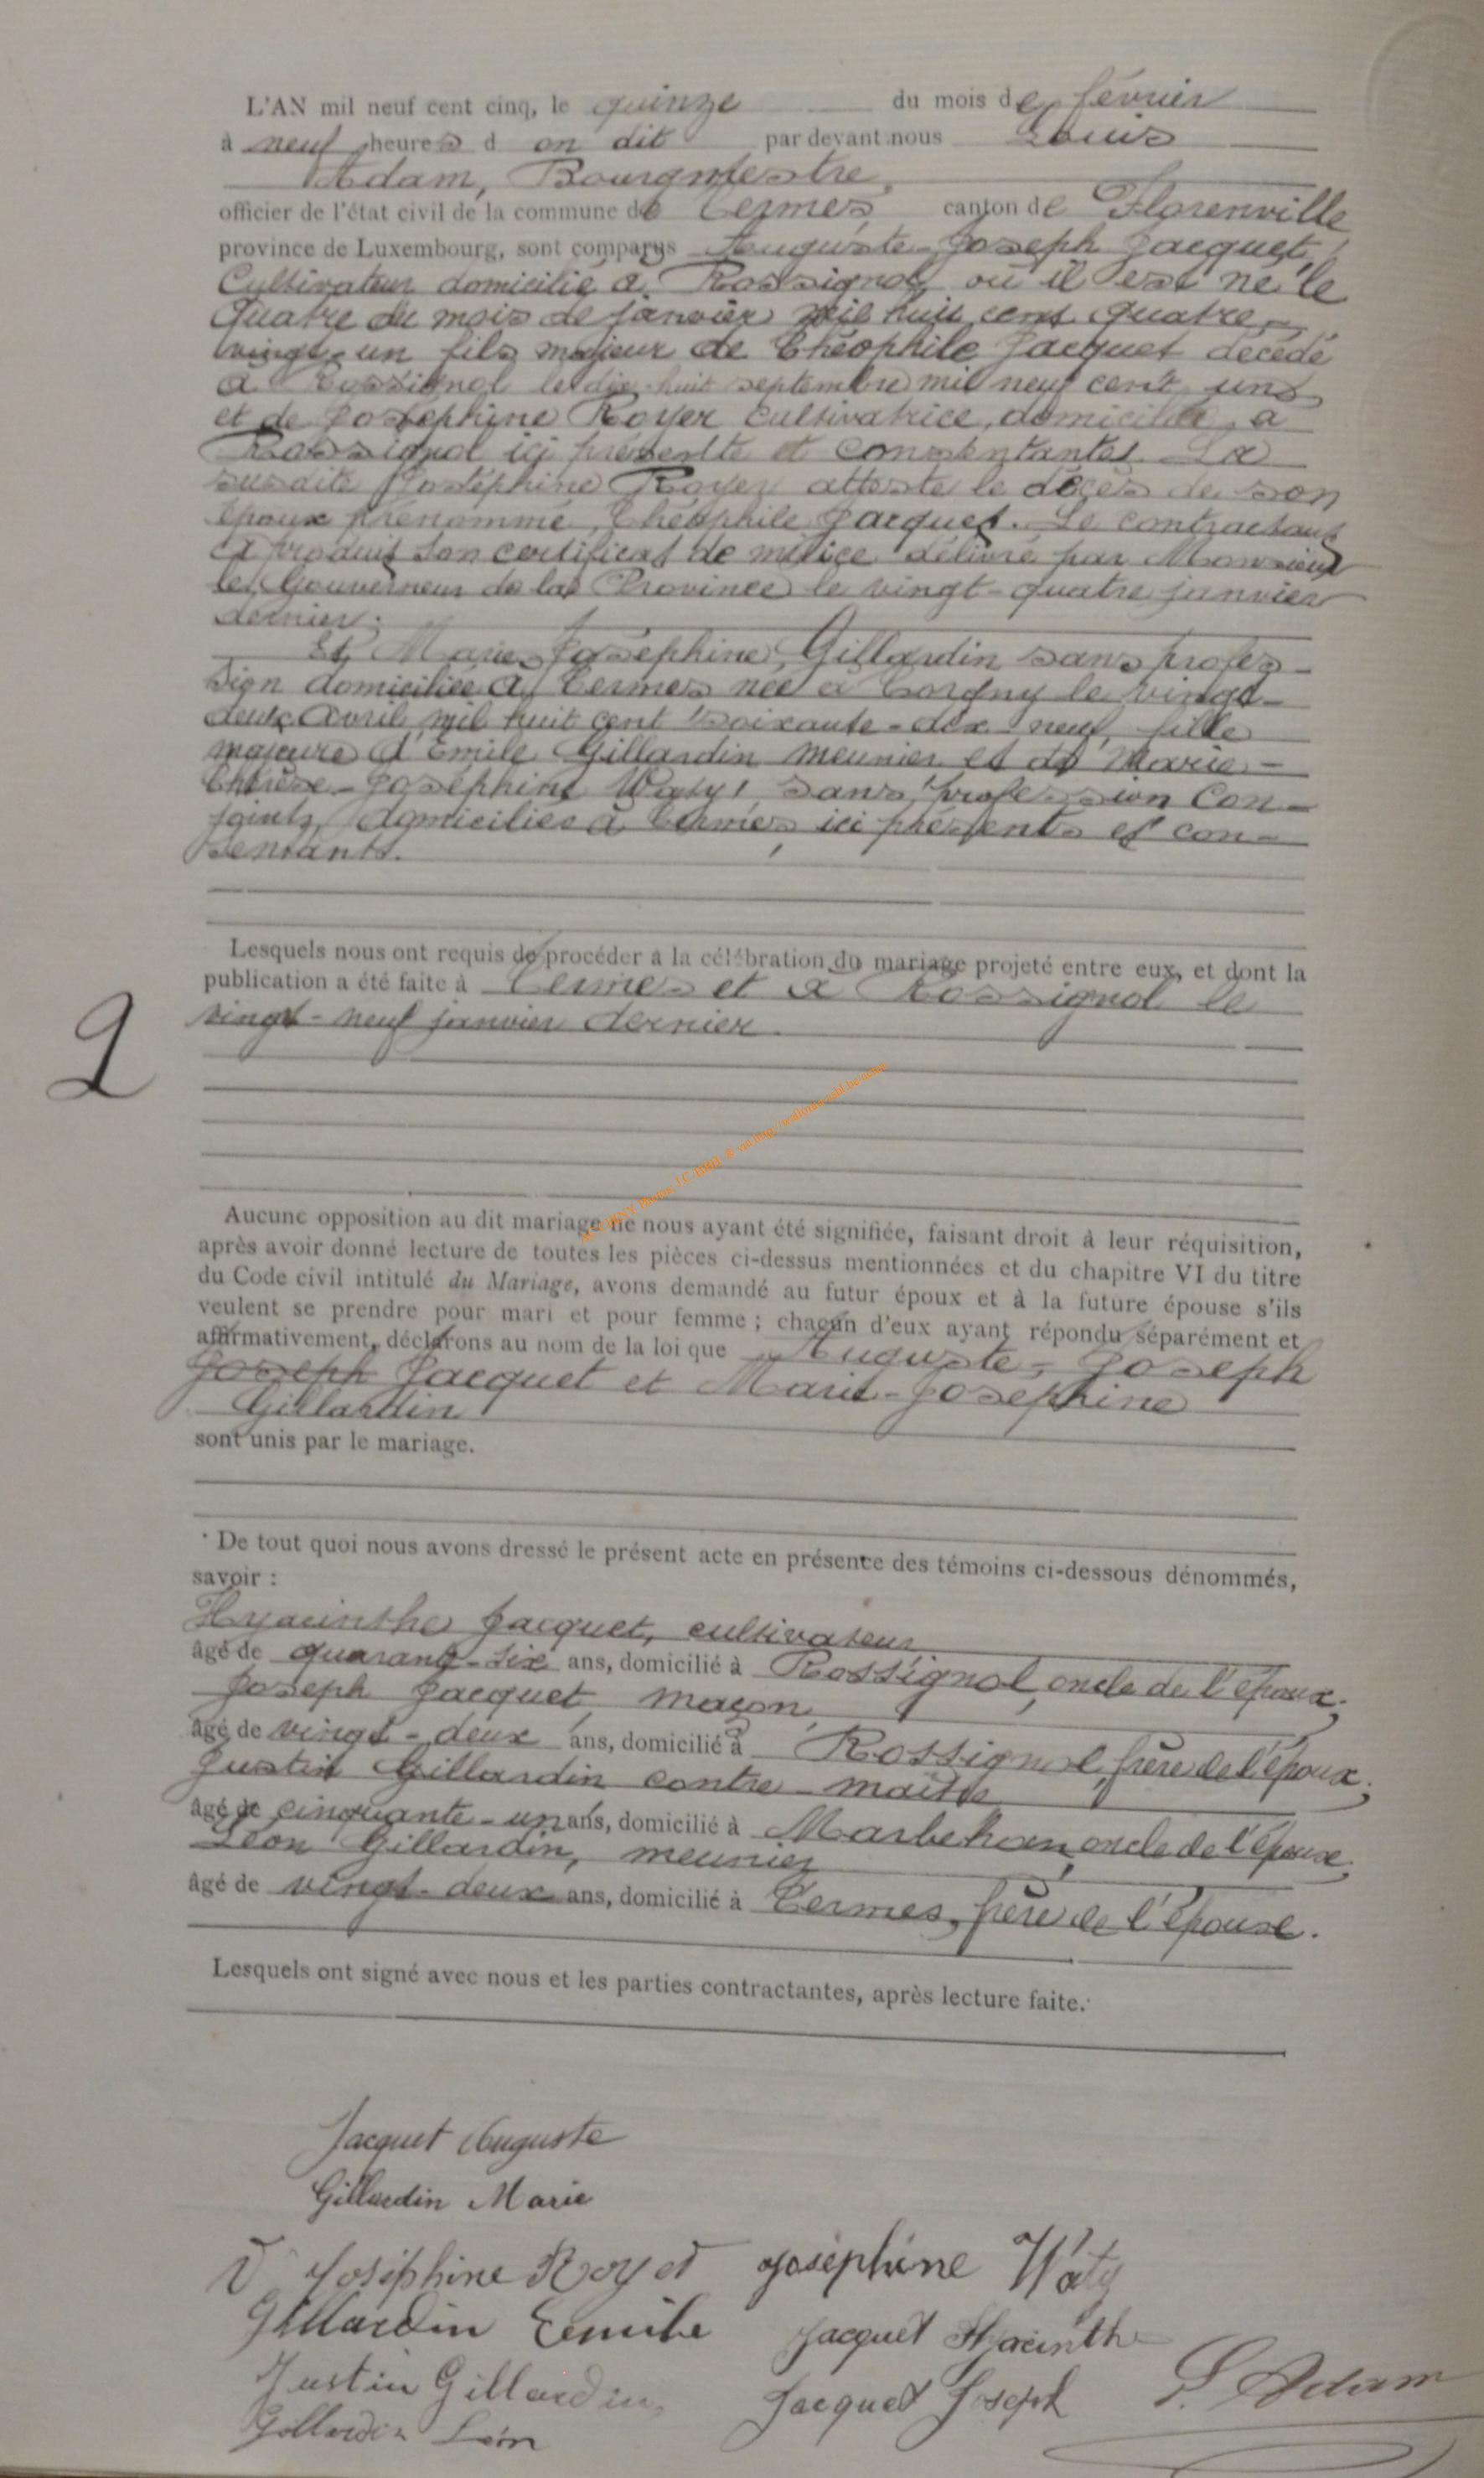 L'AN mil neuf cent cinq, le quinze du mois de février
à neuf heures d on dit par devant nous Louis
Adam, Bourgmestre,
officier de l'état civil de la commune de Termes canton de Florenville
province de Luxembourg, sont comparus Auguste-Joseph Jacquet,
Cultivateur domicilié à Rossignol où il est né le
quatre du mois de janvier mil huit cent quatre-
vingt-un fils majeur de Théophile Jacquet décédé
à Rossignol le dix-huit septembre mil neuf cent un
et de Joséphine Royer cultivatrice, domiciliée à
Rossignol ici présente et consentante. La
susdite Joséphine Royer atteste le décès de son
époux prénommé Théophile Jacquet. Le contractant
a produit son certificat de milice délivré par Monsieur
le Gouverneur de la Province le vingt-quatre janvier
dernier.
Et Marie-Joséphine Gillardin sans profes-
sion domiciliée à Termes née à Torgny le vingt-
deux avril mil huit cent soixante-dix neuf, fille
majeure d'Emile Gillardin meunier et de Marie-
Thérèse-Joséphine Waty, sans profession con-
joints, domiciliés à Termes ici présents et con-
sentants.
Lesquels nous ont requis de procéder à la célébration du mariage projeté entre eux, et dont la
publication a été faite à Termes et à Rossignol le
vingt-neuf janvier dernier.
2
Aucune opposition au dit mariage ne nous ayant été signifiée, faisant droit à leur réquisition,
après avoir donné lecture de toutes les pièces ci-dessus mentionnées et du chapitre VI du titre
du Code civil intitulé du Mariage, avons demandé au futur époux et à la future épouse s'ils
veulent se prendre pour mari et pour femme ; chacun d'eux ayant répondu séparément et
affirmativement, déclarons au nom de la loi que Auguste-Joseph
Joseph Jacquet et Marie-Joséphine
Gillardin
sont unis par le mariage.
De tout quoi nous avons dressé le présent acte en présence des témoins ci-dessous dénommés,
savoir :
Hyacinthe Jacquet, cultivateur
âgé de quarante-six ans, domicilié à Rossignol, oncle de l'époux;
Joseph Jacquet, maçon,
âgé de vingt-deux ans, domicilié à Rossignol, frère de l'époux;
Justin Gillardin contre-maître
âgé de cinquante-un ans, domicilié à Marbehan, oncle de l'épouse;
Léon Gillardin, meunier
âgé de vingt-deux ans, domicilié à Termes, frère de l'épouse.
Lesquels ont signé avec nous et les parties contractantes, après lecture faite.
Jacquet Auguste
Gillardin Marie
V Joséphine Royer Joséphine Waty
Gillardin Emile Jacquet Hyacinthe
Justin Gillardin Jacquet Joseph L. Adam
Gillardin Léon